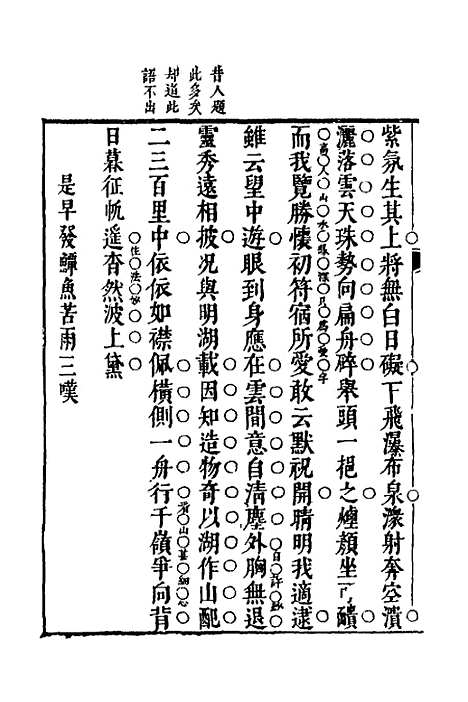 昔人題
此多矣
却道此
語不出
紫氛生其上將無白日礙下飛瀑布泉濛射奔空潰
灑落雲天珠勢向扁舟碎舉頭一挹之煙顏坐可靧
高人山水緣深只爲愛字
而我覽勝懐初符宿所愛敢云默祝開晴明我適逮
雖云望中遊眼到身應在雲間意自清塵外胸無退
自評敘
靈秀遠相披况與明湖載因知造物奇以湖作山配
二三百里中依依如襟佩橫側一舟行千嶺爭向背
看山甚細心
日暮征帆遥杳然波上黛
住法妙
是早發鱘魚苦雨三嘆